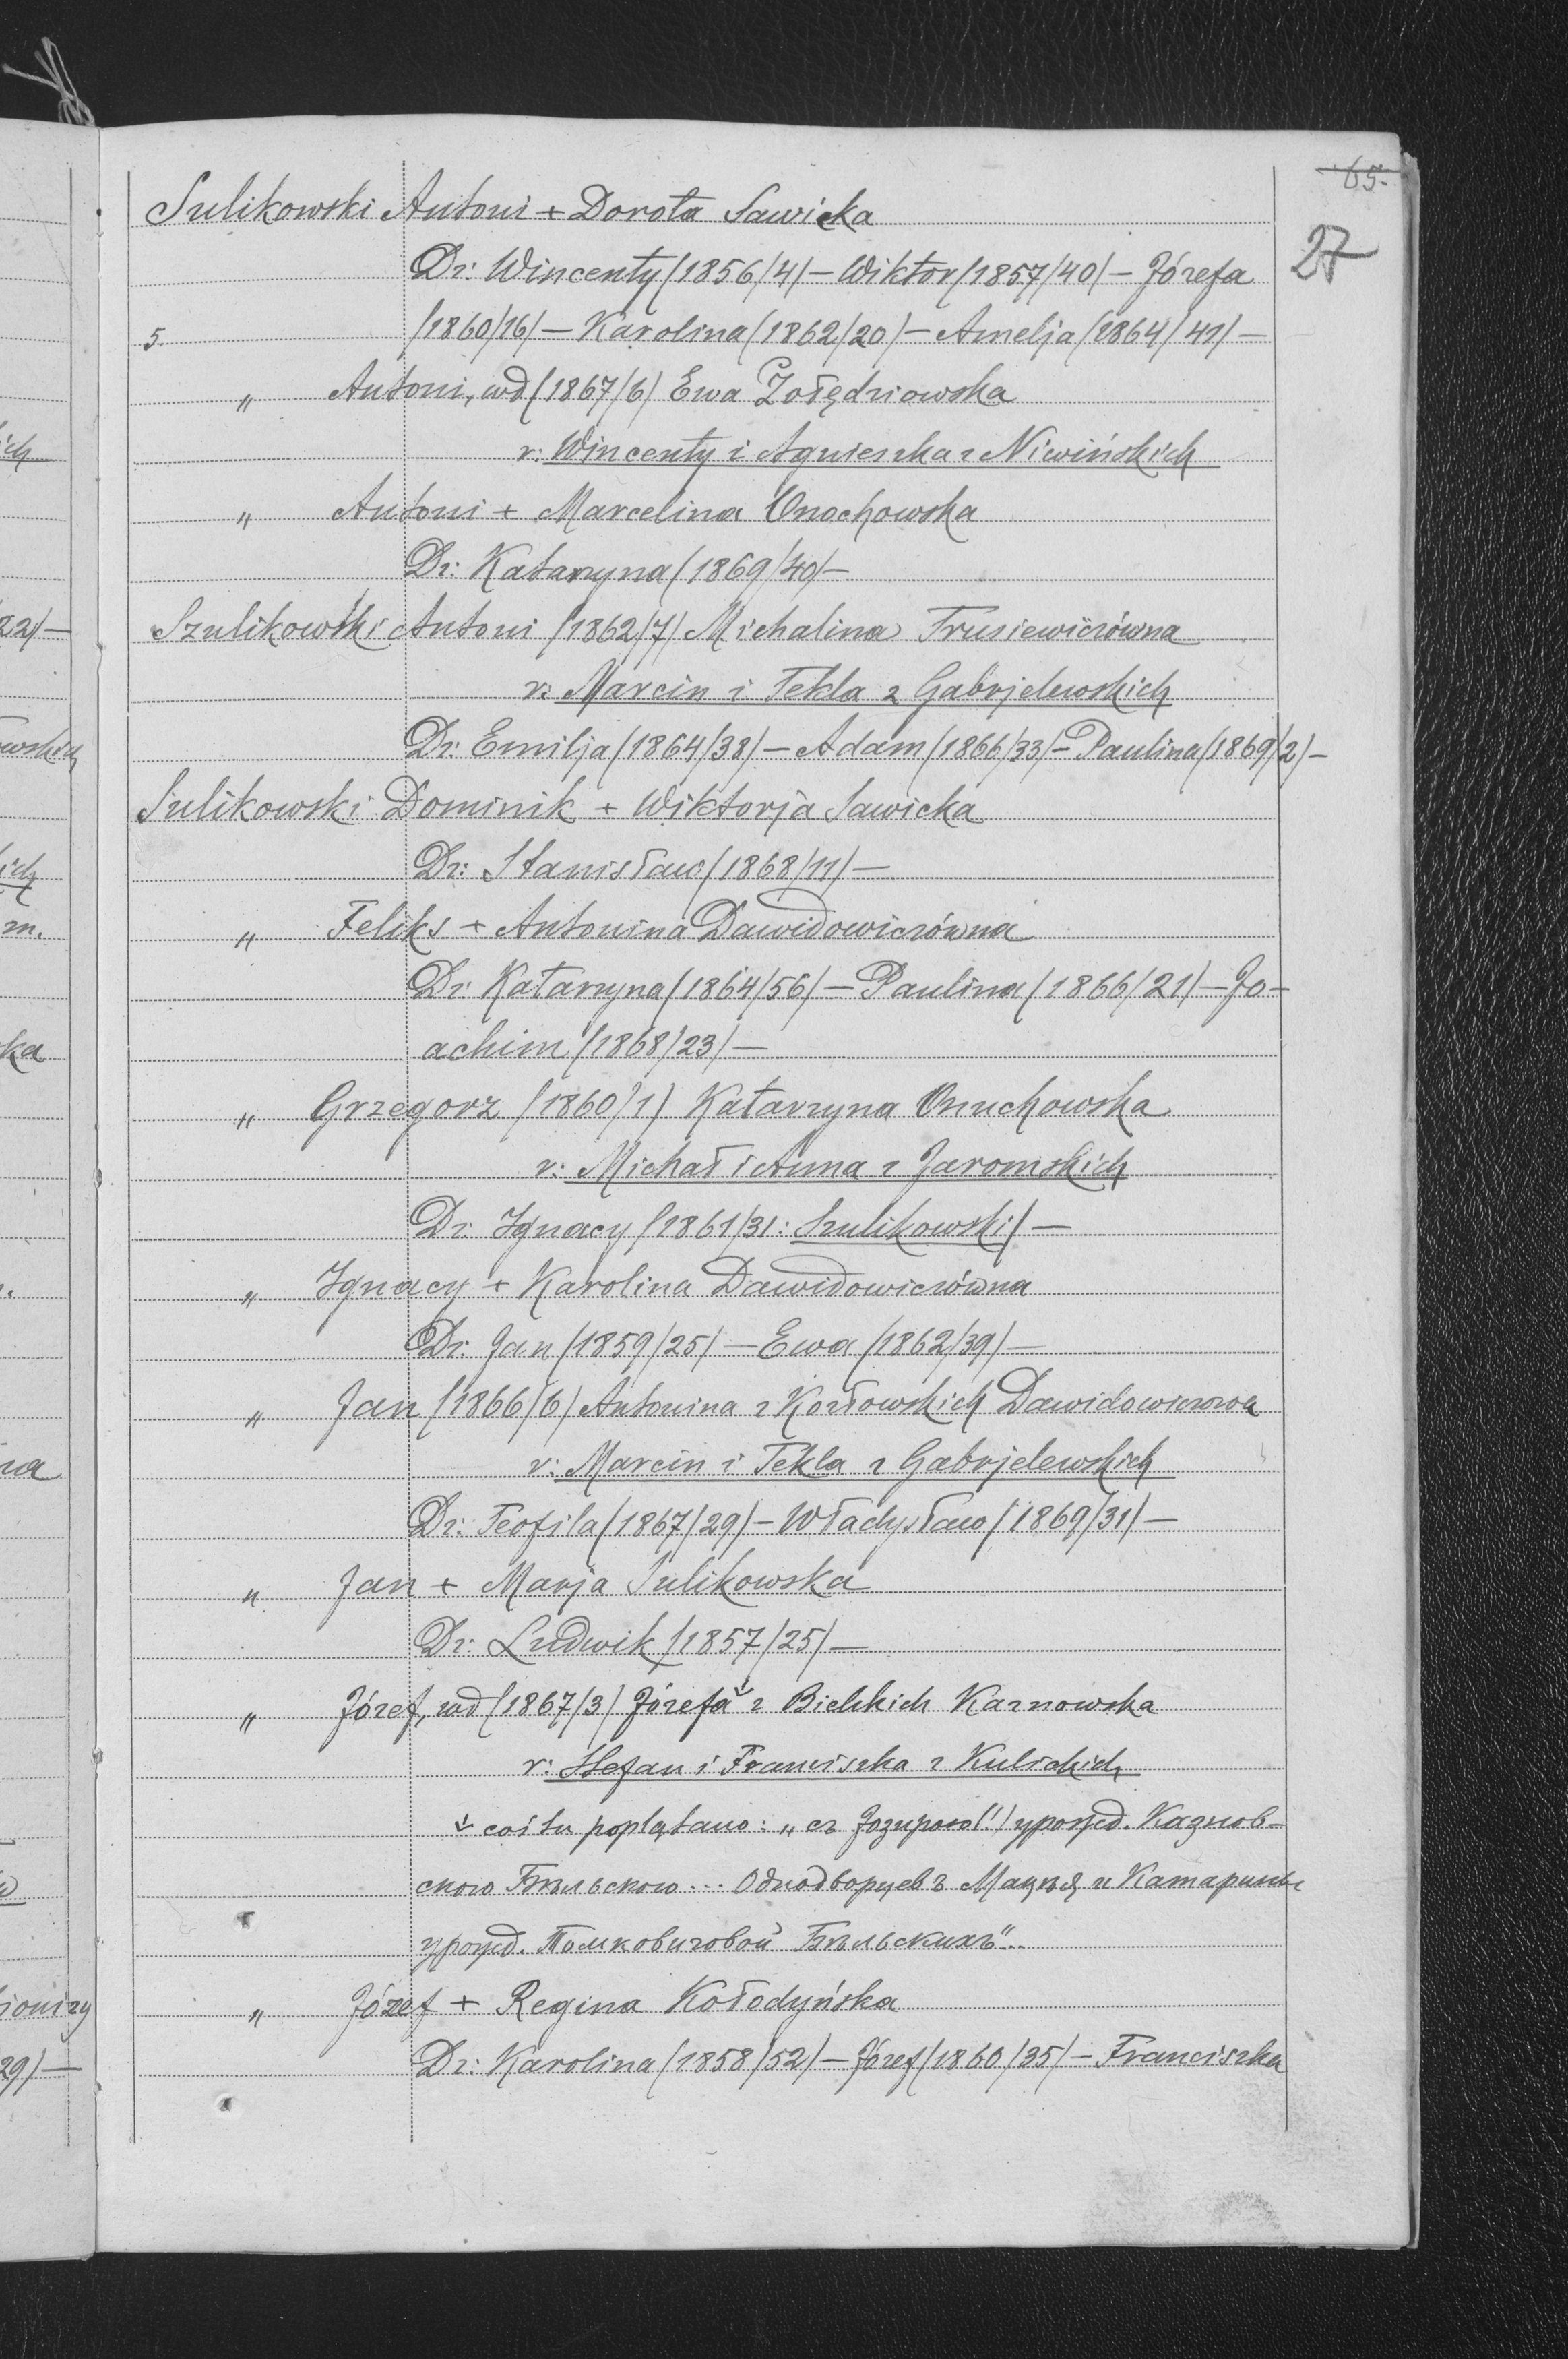 65.
27
Sulikowski Antoni + Dorota Sawicka
Dz: Wincenty (1856/4) – Wiktor (1857/40) – Józefa
5. (1860/16) – Karolina (1862/20) – Amelja (1864/41) –
„ Antoni, wd (1867/6) Ewa Żołędziowska
r: Wincenty i Agnieszka z Niwińskich
„ Antoni + Marcelina Onochowska
Dz: Katarzyna (1869/40) –
Szulikowski Antoni (1862/7) Michalina Trusiewiczówna
r: Marcin i Tekla z Gabrjelewskich
Dz: Emilja (1864/38) – Adam (1866/33) – Paulina (1869/2) –
Sulikowski Dominik + Wiktorja Sawicka
Dz: Stanisław (1868/11) –
„ Feliks + Antonina Dawidowiczówna
Dz: Katarzyna (1864/56) – Paulina (1866/21) – Jo-
achim (1868/23) –
„ Grzegorz (1860/1) Katarzyna Onuchowska
r: Michał i Anna z Jaromskich
Dz: Ignacy (1861/31: Szulikowski) –
„ Ignacy + Karolina Dawidowiczówna
Dz: Jan (1859/25) – Ewa (1862/39) –
„ Jan (1866/6) Antonina z Kozłowskich Dawidowiczowa
r: Marcin i Tekla z Gabrjelewskich
Dz: Teofila (1867/29) – Władysław (1869/31) –
„ Jan + Marja Sulikowska
Dz: Ludwik (1857/25) –
„ Józef, wd (1867/3) Józefa z Bielskich Karnowska
r: Stefan i Franciszka z Kulickich
coś tu poplątano: „съ Іозирою (!) урожд. Казнов-
ского Бѣльского... Однодворцевъ Мацѣя и Катарины
урожд. Томковичовой Бѣльскихъ"...
„ Józef + Regina Kołodyńska
Dz: Karolina (1858/52) – Józef (1860/35) – Franciszka